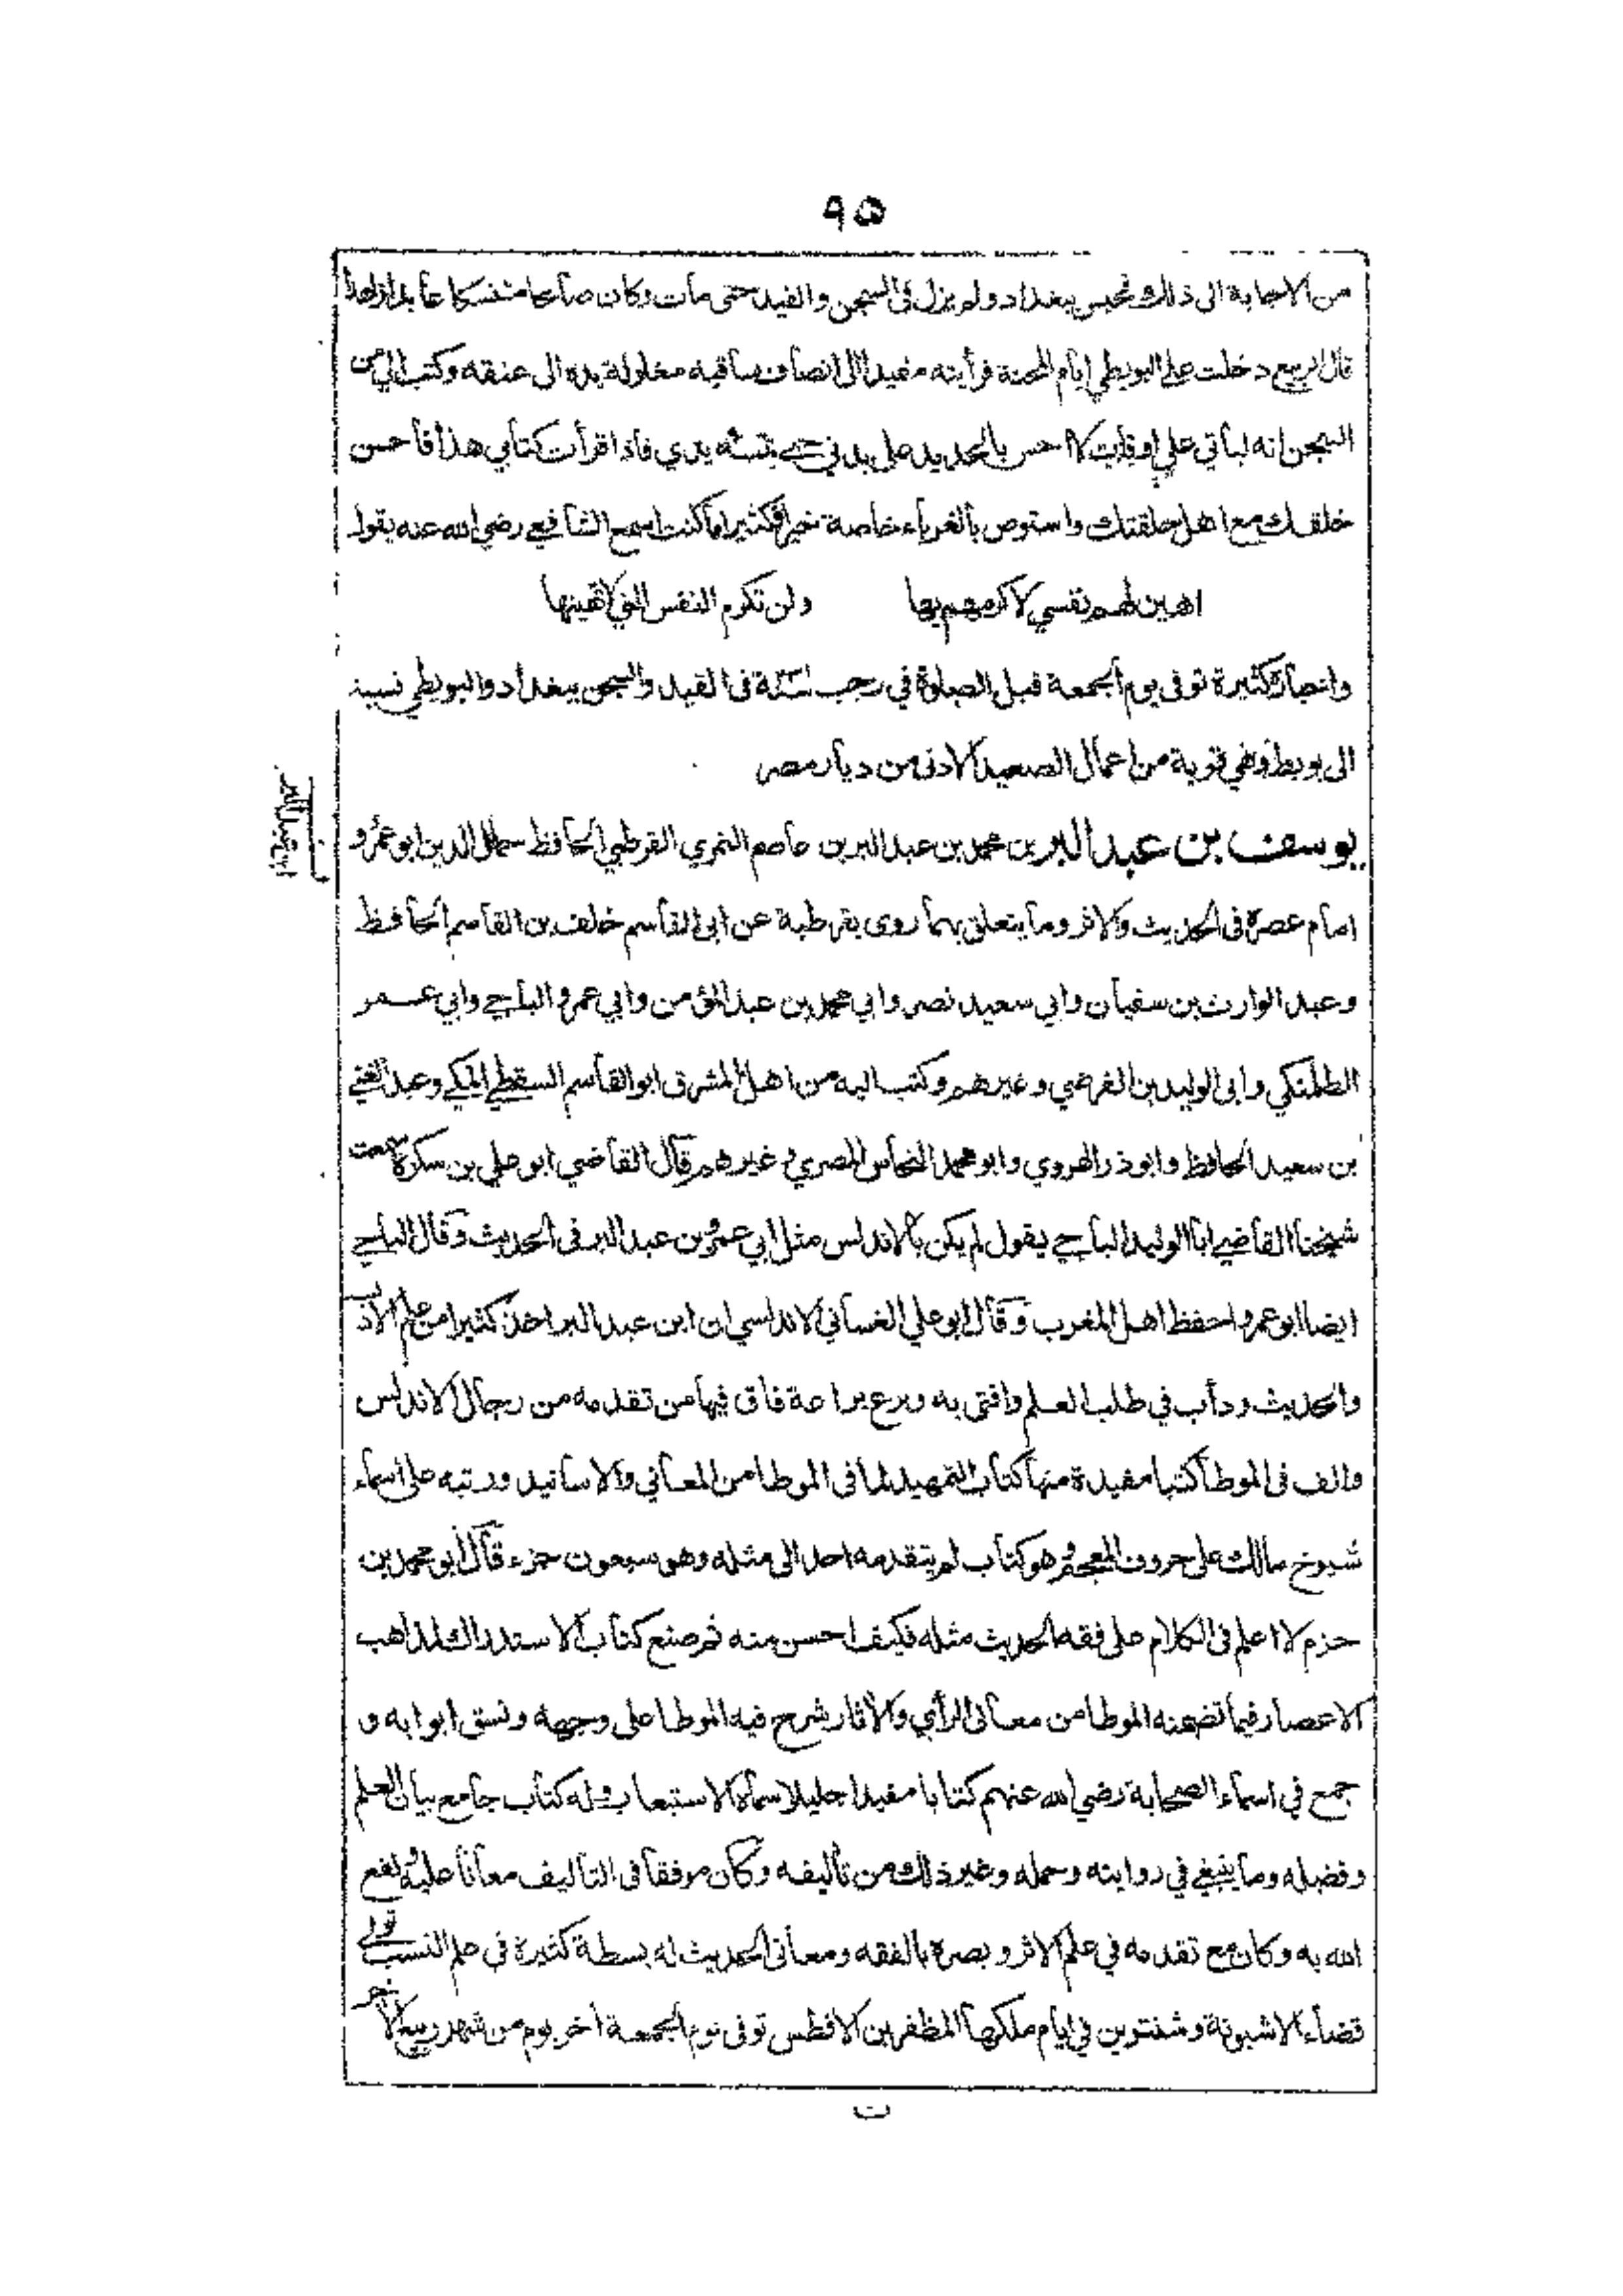 ٩٥
من الاجابة الى ذلك فحبس ببغداد ولم يزل في السجن والقيد حتى مات وكان صالحا متنسكا عابدا زاهدا
قال الربيع دخلت على البويطي ايام المحنة فرأيته مقيدا الى انصاف ساقيه مغلولة يده الى عنقه وكتب الي من
السجن انه ليأتي علي اوقات لا احس بالحديد على بدني حتى تمسه يدي فاذا قرأت كتابي هذا فأحسن
خلقك مع اهل حلقتك واستوص بالغرباء خاصة خيرا فكثيرا ما كنت اسمع الشافعي رضي الله عنه يقول
اهين لهم نفسي لاكرمهم بها ولن تكرم النفس التي لا تهينها
واخباره كثيرة توفى يوم الجمعة قبل الصلوة في رجب في القيد والسجن ببغداد والبويطي نسبة
الى بويط وهي قرية من اعمال الصعيد الادنى من ديار مصر
ابن عبد البر
يوسف بن عبد البر بن محمد بن عبد البر بن عاصم النمري القرطبي الحافظ جمال الدين ابو عمرو
امام عصره في الحديث والاثر وما يتعلق بهما روى بقرطبة عن ابي القاسم خلف بن القاسم الحافظ
وعبد الوارث بن سفيان وابي سعيد نصر وابي محمد بن عبد المؤمن وابي عمرو الباجي وابي عمر
الطلمنكي وابي الوليد بن الفرضي وغيرهم وكتب اليه من اهل المشرق ابو القاسم السقطي المكي وعبد الغني
بن سعيد الحافظ وابو ذر الهروي وابو محمد النحاس المصري وغيرهم قال القاضي ابو علي بن سكرة سمعت
شيخنا القاضي ابا الوليد الباجي يقول لم يكن بالاندلس مثل ابي عمرو بن عبد البر في الحديث وقال الباجي
ايضا ابو عمرو احفظ اهل المغرب وقال ابو علي الغساني الاندلسي ان ابن عبد البر اخذ كثيرا من علم الادب
والحديث ودأب في طلب العلم وافتى به وبرع براعة فاق فيها من تقدمه من رجال الاندلس
والف في الموطأ كتبا مفيدة منها كتاب التمهيد لما في الموطا من المعاني والاسانيد ورتبه على اسماء
شيوخ مالك على حروف المعجم وهو كتاب لم يتقدمه احد الى مثله وهو سبعون جزء قال ابو محمد بن
حزم لا اعلم في الكلام على فقه الحديث مثله فكيف احسن منه ثم صنع كتاب الاستدراك لمذاهب
الاعصار فيما تضمنه الموطا من معاني الرأي والآثار شرح فيه الموطا على وجهه ونسق ابوابه و
جمع في اسماء الصحابة رضي الله عنهم كتابا مفيدا جليلا سماه الاستيعاب وله كتاب جامع بيان العلم
وفضله وما ينبغي في روايته وحمله وغير ذلك من تأليفه وكان موفقا في التأليف معانا عليه نفع
الله به وكان مع تقدمه في علم الاثر وبصره بالفقه ومعاني الحديث له بسطة كثيرة في علم النسب تولى
قضاء الاشبونة وشنترين في ايام ملكها المظفر بن الافطس توفى يوم الجمعة آخر يوم من شهر ربيع الآخر
ت